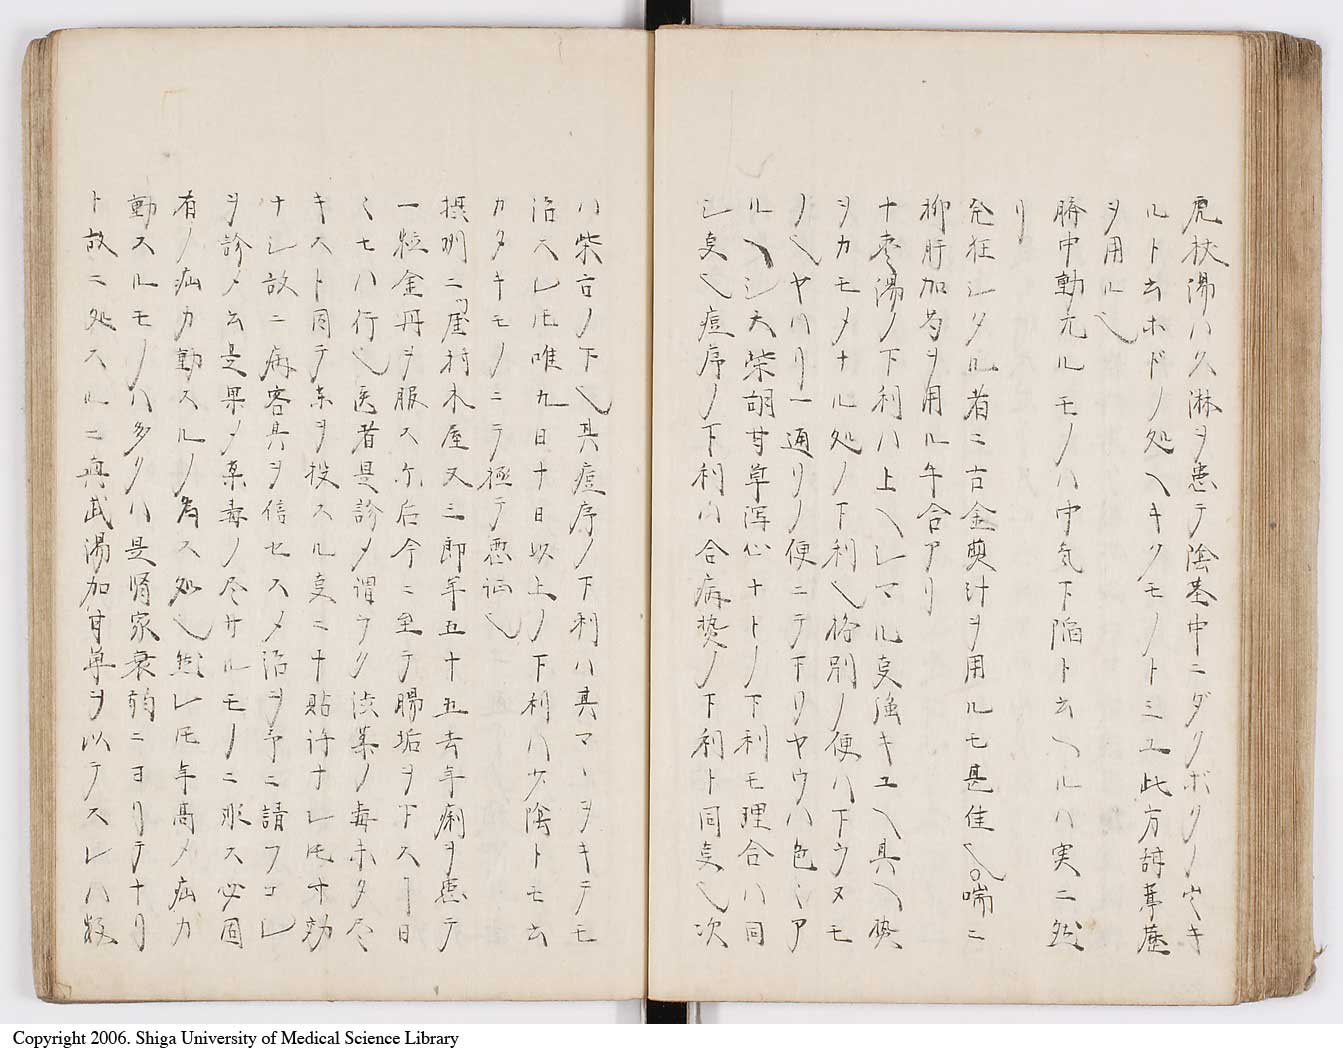 虎杖湯ハ久淋ヲ患テ陰茎中ニダクボクノ出キ
ルト云ホドノ処ヘキクモノトミユ此方諸草藶
ヲ用ルヘシ
臍中動亢ルモノハ中気下陥ト云ヘルハ実ニ然
リ
発狂シタル者ニ古金煎汁ヲ用ルモ甚佳也喘ニ
柳肝加芍ヲ用ル午合アリ
十枣湯ノ下利ハ上ヘシマル叓強キユヘ具ヘ势
ヲカモメナル処ノ下利也格別ノ便ハ下ウヌモ
ノ也ヤハリ一通リノ便ニテ下リヤウハ色〻ア
ルヘシ大柴胡甘草瀉心ナトノ下利モ理合ハ同
シ叓也痘序ノ下利ハ合病势ノ下利ト同叓也次
ハ柴古ノ下也其痘序ノ下利ハ其マヽヲキテモ
治スレ𪜈唯九日十日以上ノ下利ハ少陰トモ云
カタキモノニテ極テ悪証也
摂州二ツ屋村木屋又三郎年五十五去年痢ヲ患テ
一粒金丹ヲ服ス尓后今ニ至テ腸垢ヲ下スヿ日
〻七八行也医者是診メ謂ラク渋薬ノ毒未タ尽
キスト因テ東ヲ投スル叓ニ十貼許ナレ𪜈寸効
ナシ故ニ病客其ヲ信セスメ治ヲ予ニ請フコレ
ヲ診メ云是果メ薬毒ノ尽サルモノニ形ス必固
有ノ疝カ動スルノ為ス処也然レ𪜈年高メ疝カ
動スルモノハ多クハ是腎家衰弱ニヨリテナリ
ト故ニ処スルニ真武湯加甘草ヲ以テスレハ数
Copyright 2006. Shiga University of Medical Science Library